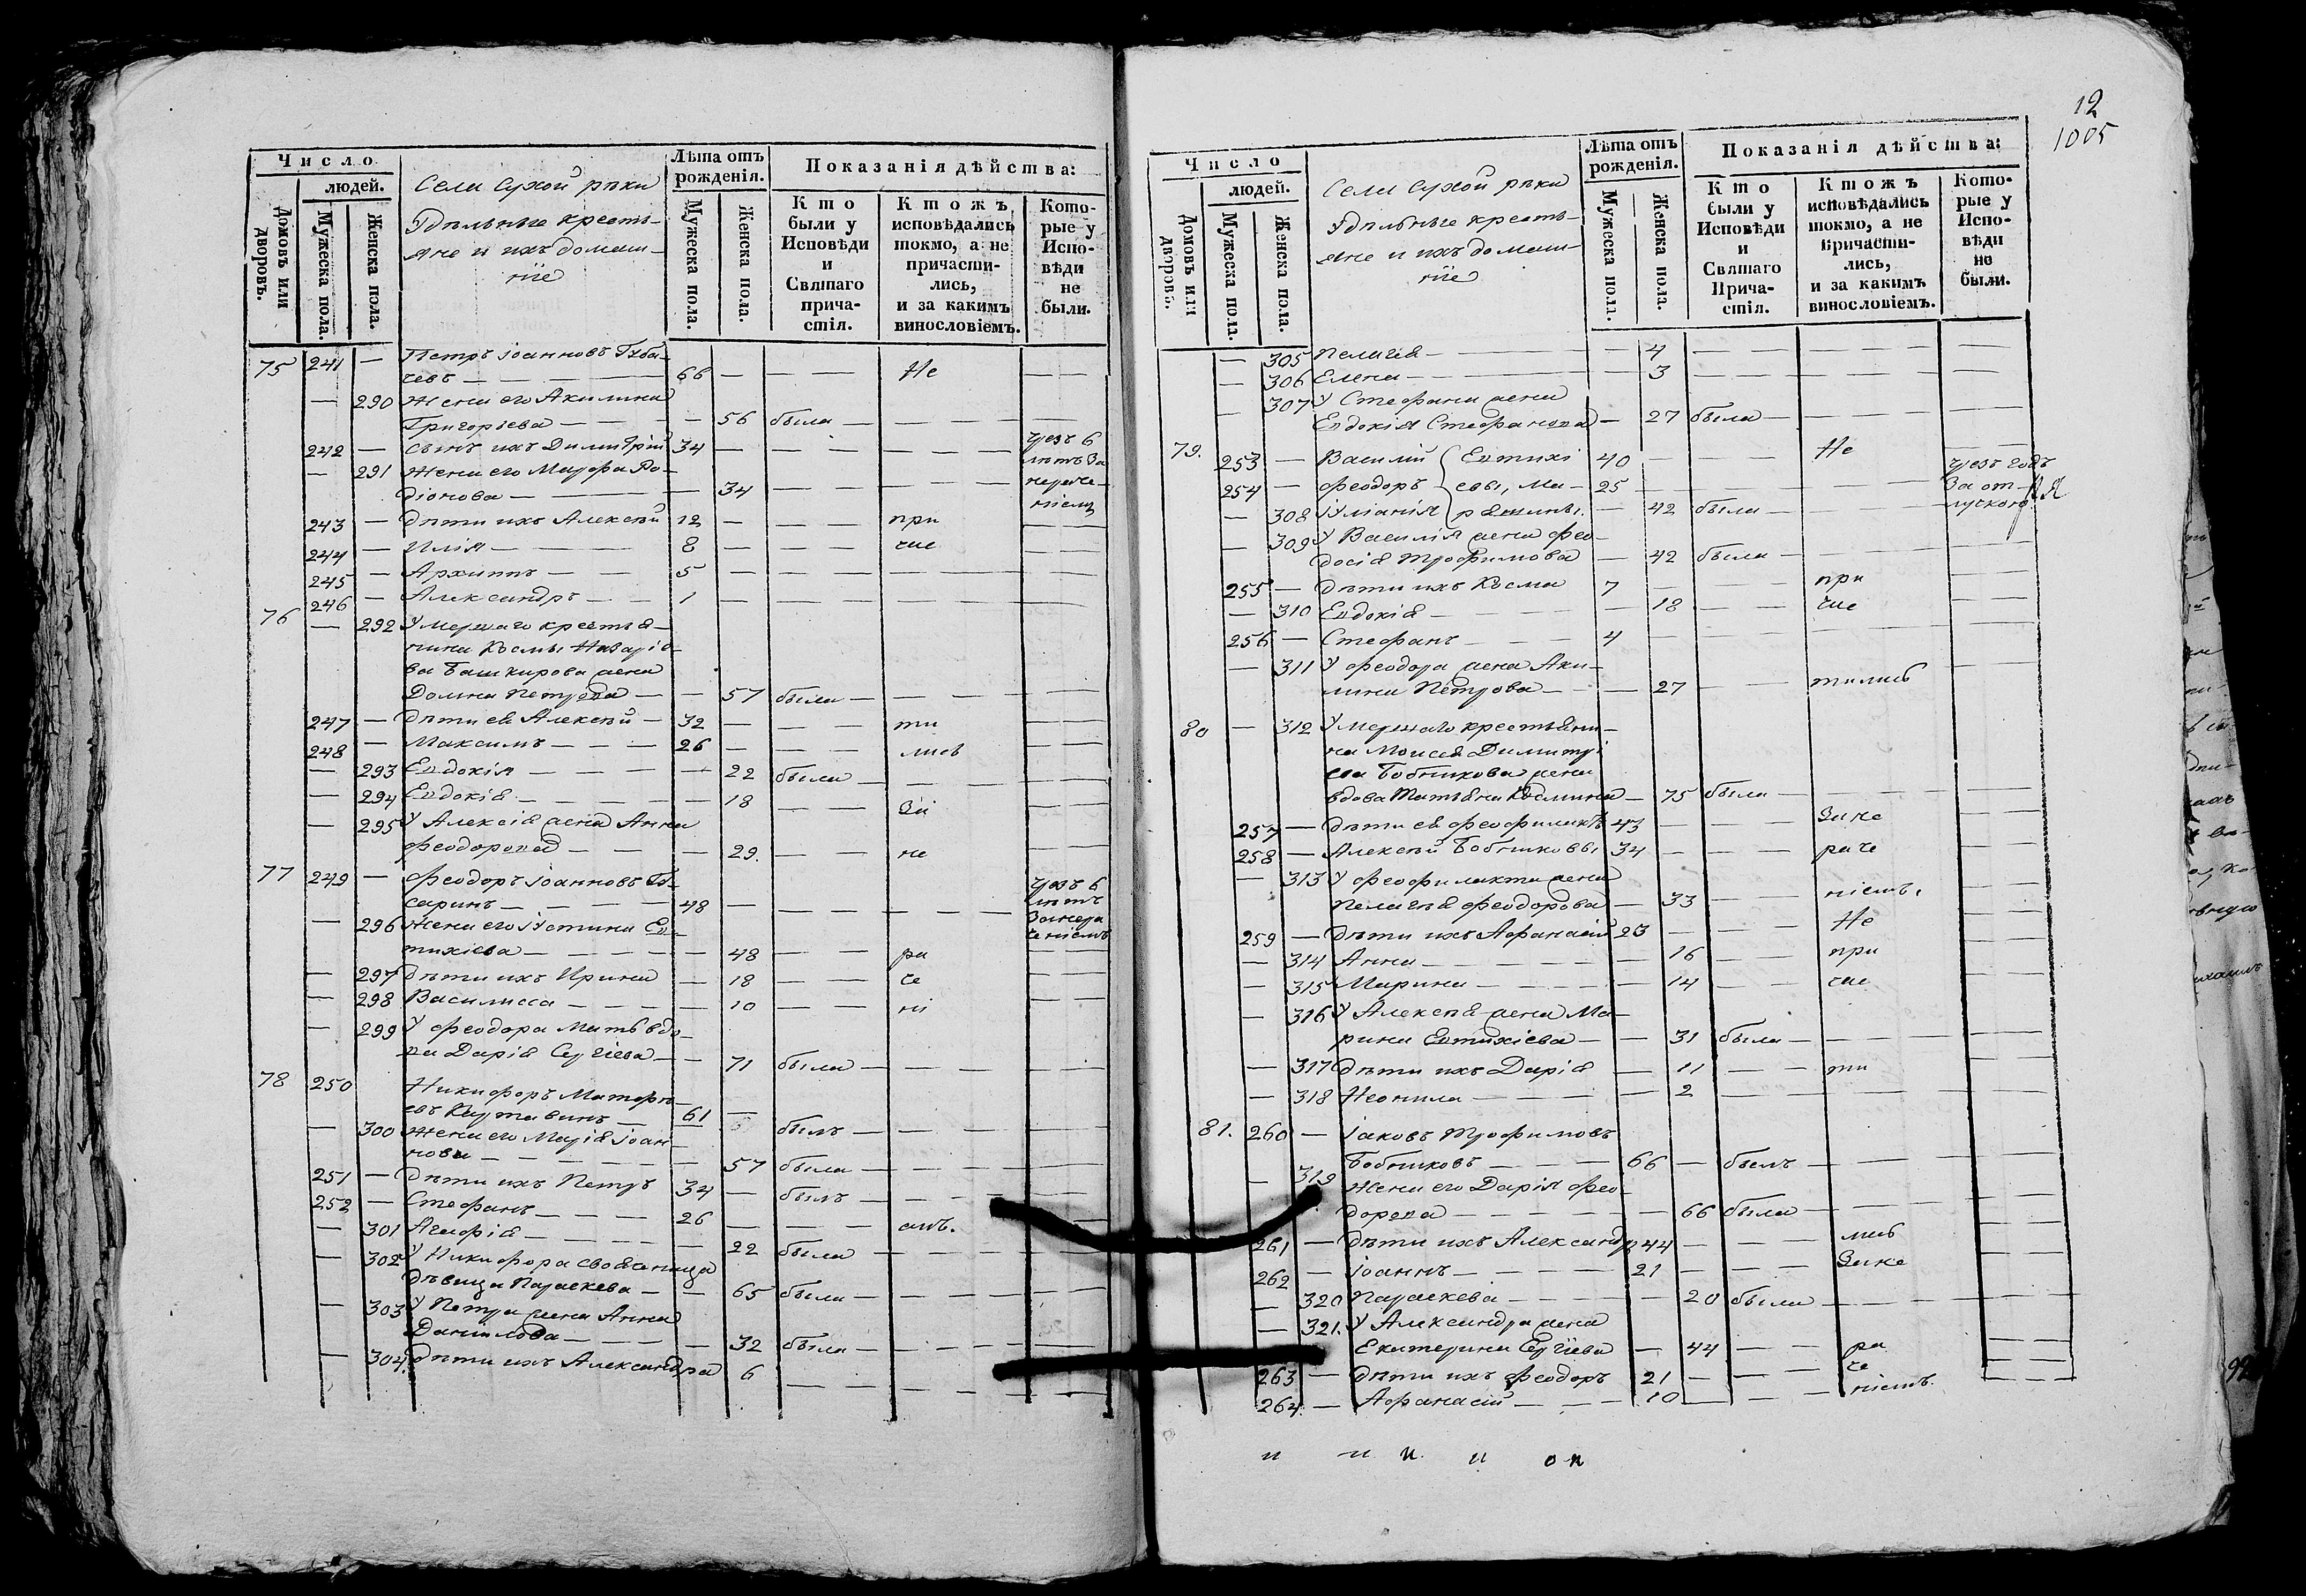 Число
людей.
Домовъ или дворовъ.
Мужеска пола.
Женска пола.
Села Сухой рѣки
Удѣльные кресть-
яне и ихъ домаш-
ніе
Лѣта отъ рожденія.
Мужеска пола.
Женска пола.
Показанія дѣйства:
Кто были у Исповѣди и Святаго прича-стія.
Ктожъ исповѣдались токмо, а не причасти-лись, и за какимъ винословіемъ.
Кото-рые у Испо-вѣди не были.
75 241 — Петръ Іоанновъ
чевъ — 66 — — — Не — —
— 290 Жена его Акилина
Григорьева — — 56 была — — —
242 — Сынъ ихъ Димитрій 34 — — — — — чрезъ 6
— 291 Жена его Марфа Ро- лѣтъ за
діонова — — 34 — — — — нераче-
ніемъ
243 — Дѣти ихъ Алексѣй 12 — — — при — —
244 — Илія — 8 — — — час — —
245 — Архиппъ — 5 — — — — — —
246 — Александръ — 1 — — — — — —
76 — 292 Умершаго крестья-
нина Космы Назарье-
ва Башкирова жена
Домна Петрова — — 57 была — — —
247 — Дѣти ея Алексѣй — 32 — — — ти — —
248 — Максимъ — 26 — — — лись — —
— 293 Евдокія — — 22 была — — —
— 294 Евдокія — — 18 — — За — —
— 295 У Алексія жена Анна
Феодорова — — 29. — — не — —
77 249 — Феодоръ Іоанновъ
саринъ — 48 — — — — — чрезъ 6
лѣтъ
— 296 Жена его Устинья Ев- за нера
тихіева — — 48 — — ра ченіемъ
— 297 Дѣти ихъ Ирина — 18 — — че — —
— 298 Василисса — — 10 — — ні — —
— 299 У Феодора мать вдо-
ва Дарія Сергіева — — 71 была — — —
78 250 Никифоръ Матфѣ-
евъ — 61 — былъ — — —
— 300 Жена его Марія Іоан-
нова — — 57 была — — —
251 — Дѣти ихъ Петръ 34 — былъ — — —
252 — Стефанъ — 26 — — — емъ. — —
— 301 Агафія — — 22 была — — —
— 302 У Никифора свояченица
дѣвица Параскева — — 65 была — — —
— 303 У Петра жена Анна
Данилова — — 32 была — — —
— 304. Дѣти ихъ Александра 6 — — — —
12
1005
Число
людей.
Домовъ или дворовъ.
Мужеска пола.
Женска пола.
Села Сухой рѣки
Удѣльные кресть-
яне и ихъ домаш-
ніе
Лѣта отъ рожденія.
Мужеска пола.
Женска пола.
Показанія дѣйства:
Кто были у Исповѣди и Святаго Прича-стія.
Ктожъ исповѣдались токмо, а не Причасти-лись, и за какимъ винословіемъ.
Кото-рые у Испо-вѣди не были.
— 305 Пелагея — — 4 — — — —
— 306 Елена — — 3 — — — —
— 307 У Стефана жена
Евдокія Стефанова — 27 была — — —
79. 253 — Василій Евтихі 40 — — — Не — —
254 — Феодоръ евы, Ма- 25 — — — чрезъ годъ
за от-
— 308 Уліанія 42 была — — лучкою.
— 309 У Василія жена Фео-
досія Трофимова — 42 была — — —
255 — Дѣти ихъ Косма 7 — — — при — —
— 310 Евдокія — — 18 — — час — —
256 — Стефанъ — 4 — — — — — —
— 311 У Феодора жена Аки-
лина Петрова — — 27 — — тились — —
80 — 312 Умершаго крестьяни-
на Моисея Димитрі
ева Бобликова жена
вдова Татьяна Космина — 75 была — — —
257 — Дѣти ея Феофилактъ 43 — — — За не — —
258 — Алексѣй Бобликовы 34 — — — раче — —
— 313 У Феофилакта жена
Пелагея Феодорова — 33 — — ніемъ. — —
259 — Дѣти ихъ Афанасій 23 — — — Не — —
— 314 Анна — — 16 — — при — —
— 315 Марина — — 14 — — час — —
— 316 У Алексѣя жена Ма-
рина Евтихіева — — 31 была — — —
— 317 Дѣти ихъ Дарія — 11 — — ти — —
— 318 Неонила — — 2 — — — —
81. 260 — Іаковъ Трофимовъ
Бобликовъ — 66 — былъ — — —
— 319 Жена его Дарія Фео-
дорова — — 66 была — — —
261 — Дѣти ихъ Александръ 44 — — — лись — —
262 — Іоаннъ — 21 — — — За не — —
— 320 Параскева — — 20 была — — —
— 321. У Александра жена
Екатерина Сергіева — 44 — — ра — —
263 — Дѣти ихъ Феодоръ 21 — — — че — —
264. — Афанасій — 10 — — — ніемъ. — —